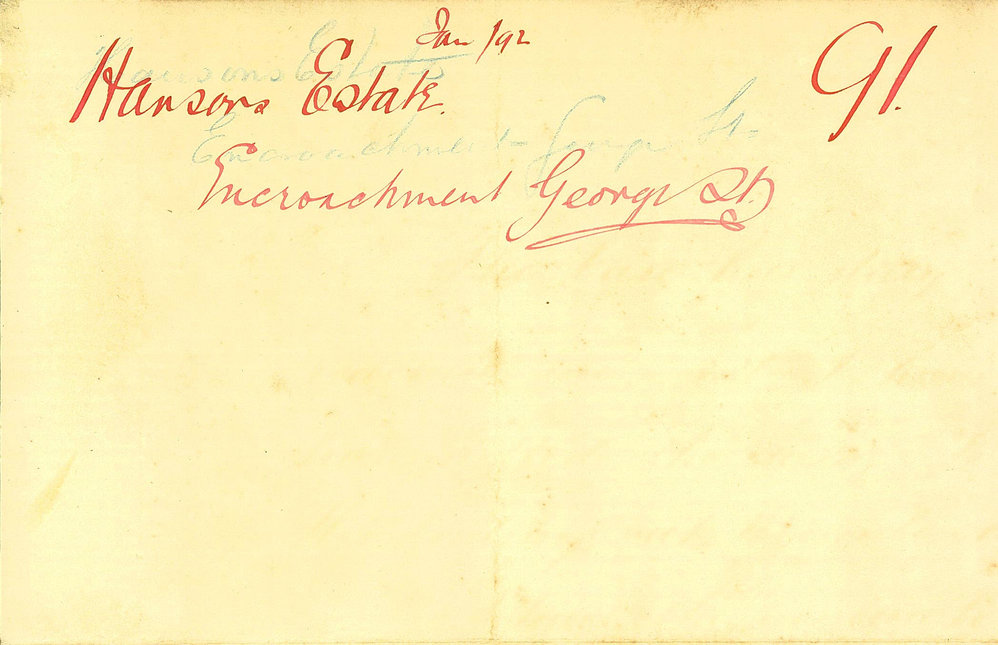 Jan /92
Hansons Estate. 91.
Hansons Estate
Encroachment George St.
Encroachment George St.